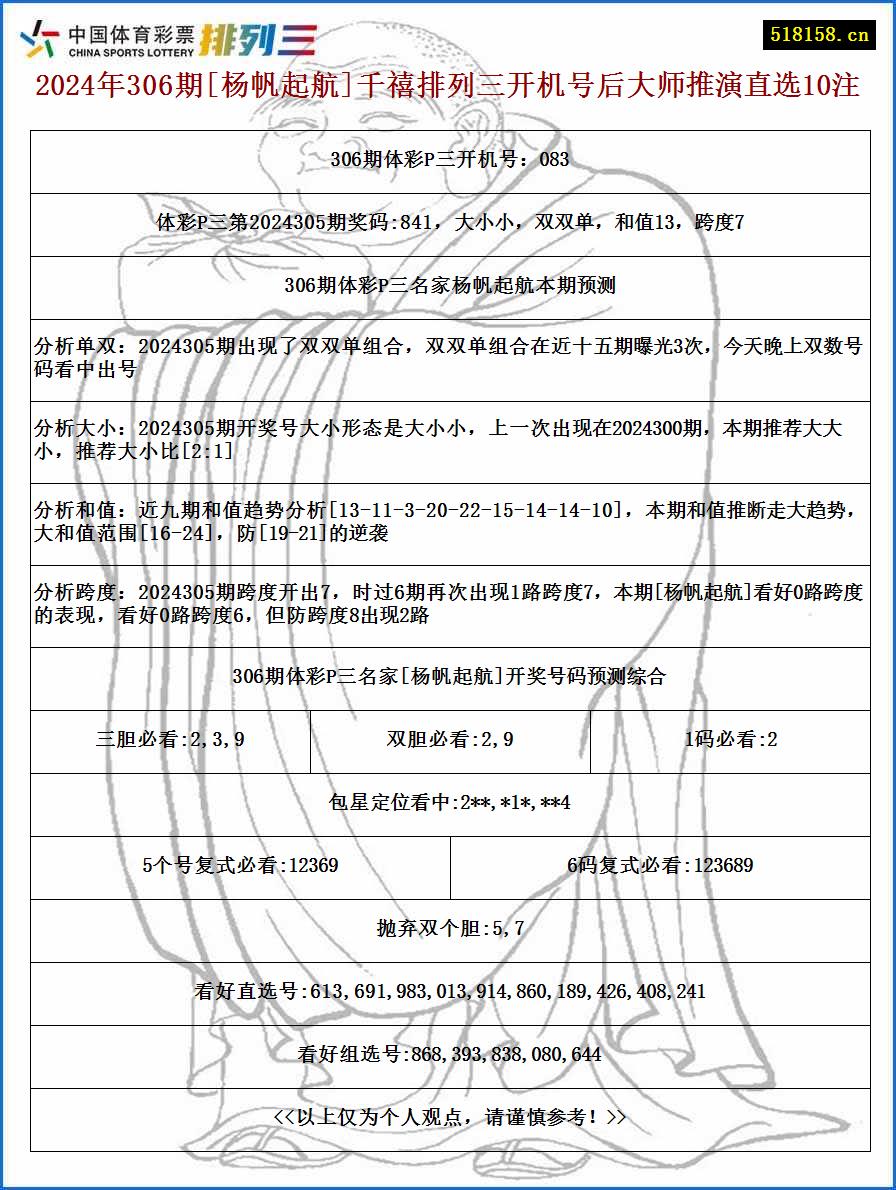 中国体育彩票 排列三
CHINA SPORTS LOTTERY
518158.cn
2024年306期[杨帆起航]千禧排列三开机号后大师推演直选10注
306期体彩P三开机号：083
体彩P三第2024305期奖码:841，大小小，双双单，和值13，跨度7
306期体彩P三名家杨帆起航本期预测
分析单双：2024305期出现了双双单组合，双双单组合在近十五期曝光3次，今天晚上双数号
码看中出号
分析大小：2024305期开奖号大小形态是大小小，上一次出现在2024300期，本期推荐大大
小，推荐大小比[2:1]
分析和值：近九期和值趋势分析[13-11-3-20-22-15-14-14-10]，本期和值推断走大趋势，
大和值范围[16-24]，防[19-21]的逆袭
分析跨度：2024305期跨度开出7，时过6期再次出现1路跨度7，本期[杨帆起航]看好0路跨度
的表现，看好0路跨度6，但防跨度8出现2路
306期体彩P三名家[杨帆起航]开奖号码预测综合
三胆必看:2,3,9
双胆必看:2,9
1码必看:2
包星定位看中:2**,*1*,**4
5个号复式必看:12369
6码复式必看:123689
抛弃双个胆:5,7
看好直选号:613,691,983,013,914,860,189,426,408,241
看好组选号:868,393,838,080,644
<<以上仅为个人观点，请谨慎参考！>>